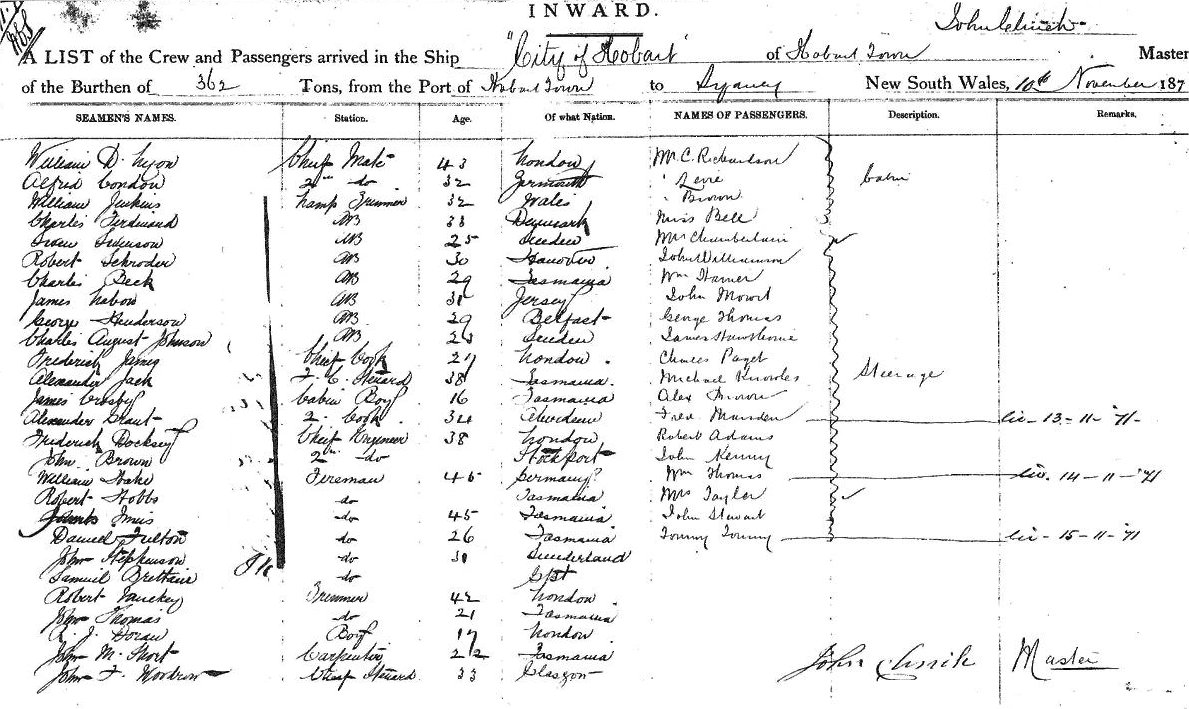 INWARD.
John Clinch
A LIST of the Crew and Passengers arrived in the Ship "City of Hobart" of Hobart Town Master
of the Burthen of 362 Tons, from the Port of Hobart Town to Sydney New South Wales, 10th November 187
SEAMEN'S NAMES. Station. Age. Of what Nation. NAMES OF PASSENGERS. Description. Remarks.
William D. Chief Mate 43 London Mr C. Richardson
Alfred London 2nd do 32 Yarmouth " Cabin
William Jenkins Lamp Trimmer 32 Wales " Brown
Charles Ferdinand AB 33 Denmark Miss Bell
AB 25 Sweden Mrs Chamberlain
Robert Schroder AB 30 Hanover John Williamson
Charles Beck AB 29 Tasmania Wm
James AB 31 Jersey John
George Henderson AB 29 Belfast George Thomas
Charles August Johnson AB 23 Sweden James Hawthorne
Frederick Chief Cook 27 London Charles Paget
Alexander Jack F. C. Steward 38 Tasmania Michael Knowles Steerage
James Crosby Cabin Boy 16 Tasmania Alex Brown
Alexander Grant 2 Cook 34 Aberdeen Fred Marsden liv - 13-11-'71-
Frederick Docksey Chief Engineer 38 London Robert Adams
John Brown 2nd do Stockport John Kenny
William Fireman 45 Germany Wm Thomas liv. 14-11-'71
Robert Hobbs do Tasmania Mrs Taylor
do 45 Tasmania John Stewart
Daniel Fulton do 26 Tasmania Tommy Tommy liv - 15-11-'71
John Stephenson do 31 Sunderland
Samuel Brettain do
Robert Trimmer 42 London
John Thomas do 21 Tasmania
R. J. Boy 17 London
John M. Short Carpenter 22 Tasmania
John F. Woodrow Chief Steward 33 Glasgow
John Clinch Master